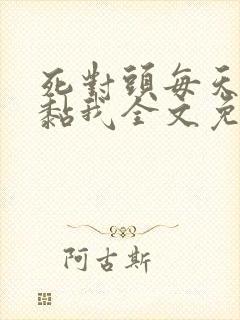 死對頭每天
黏我全文免
阿古斯